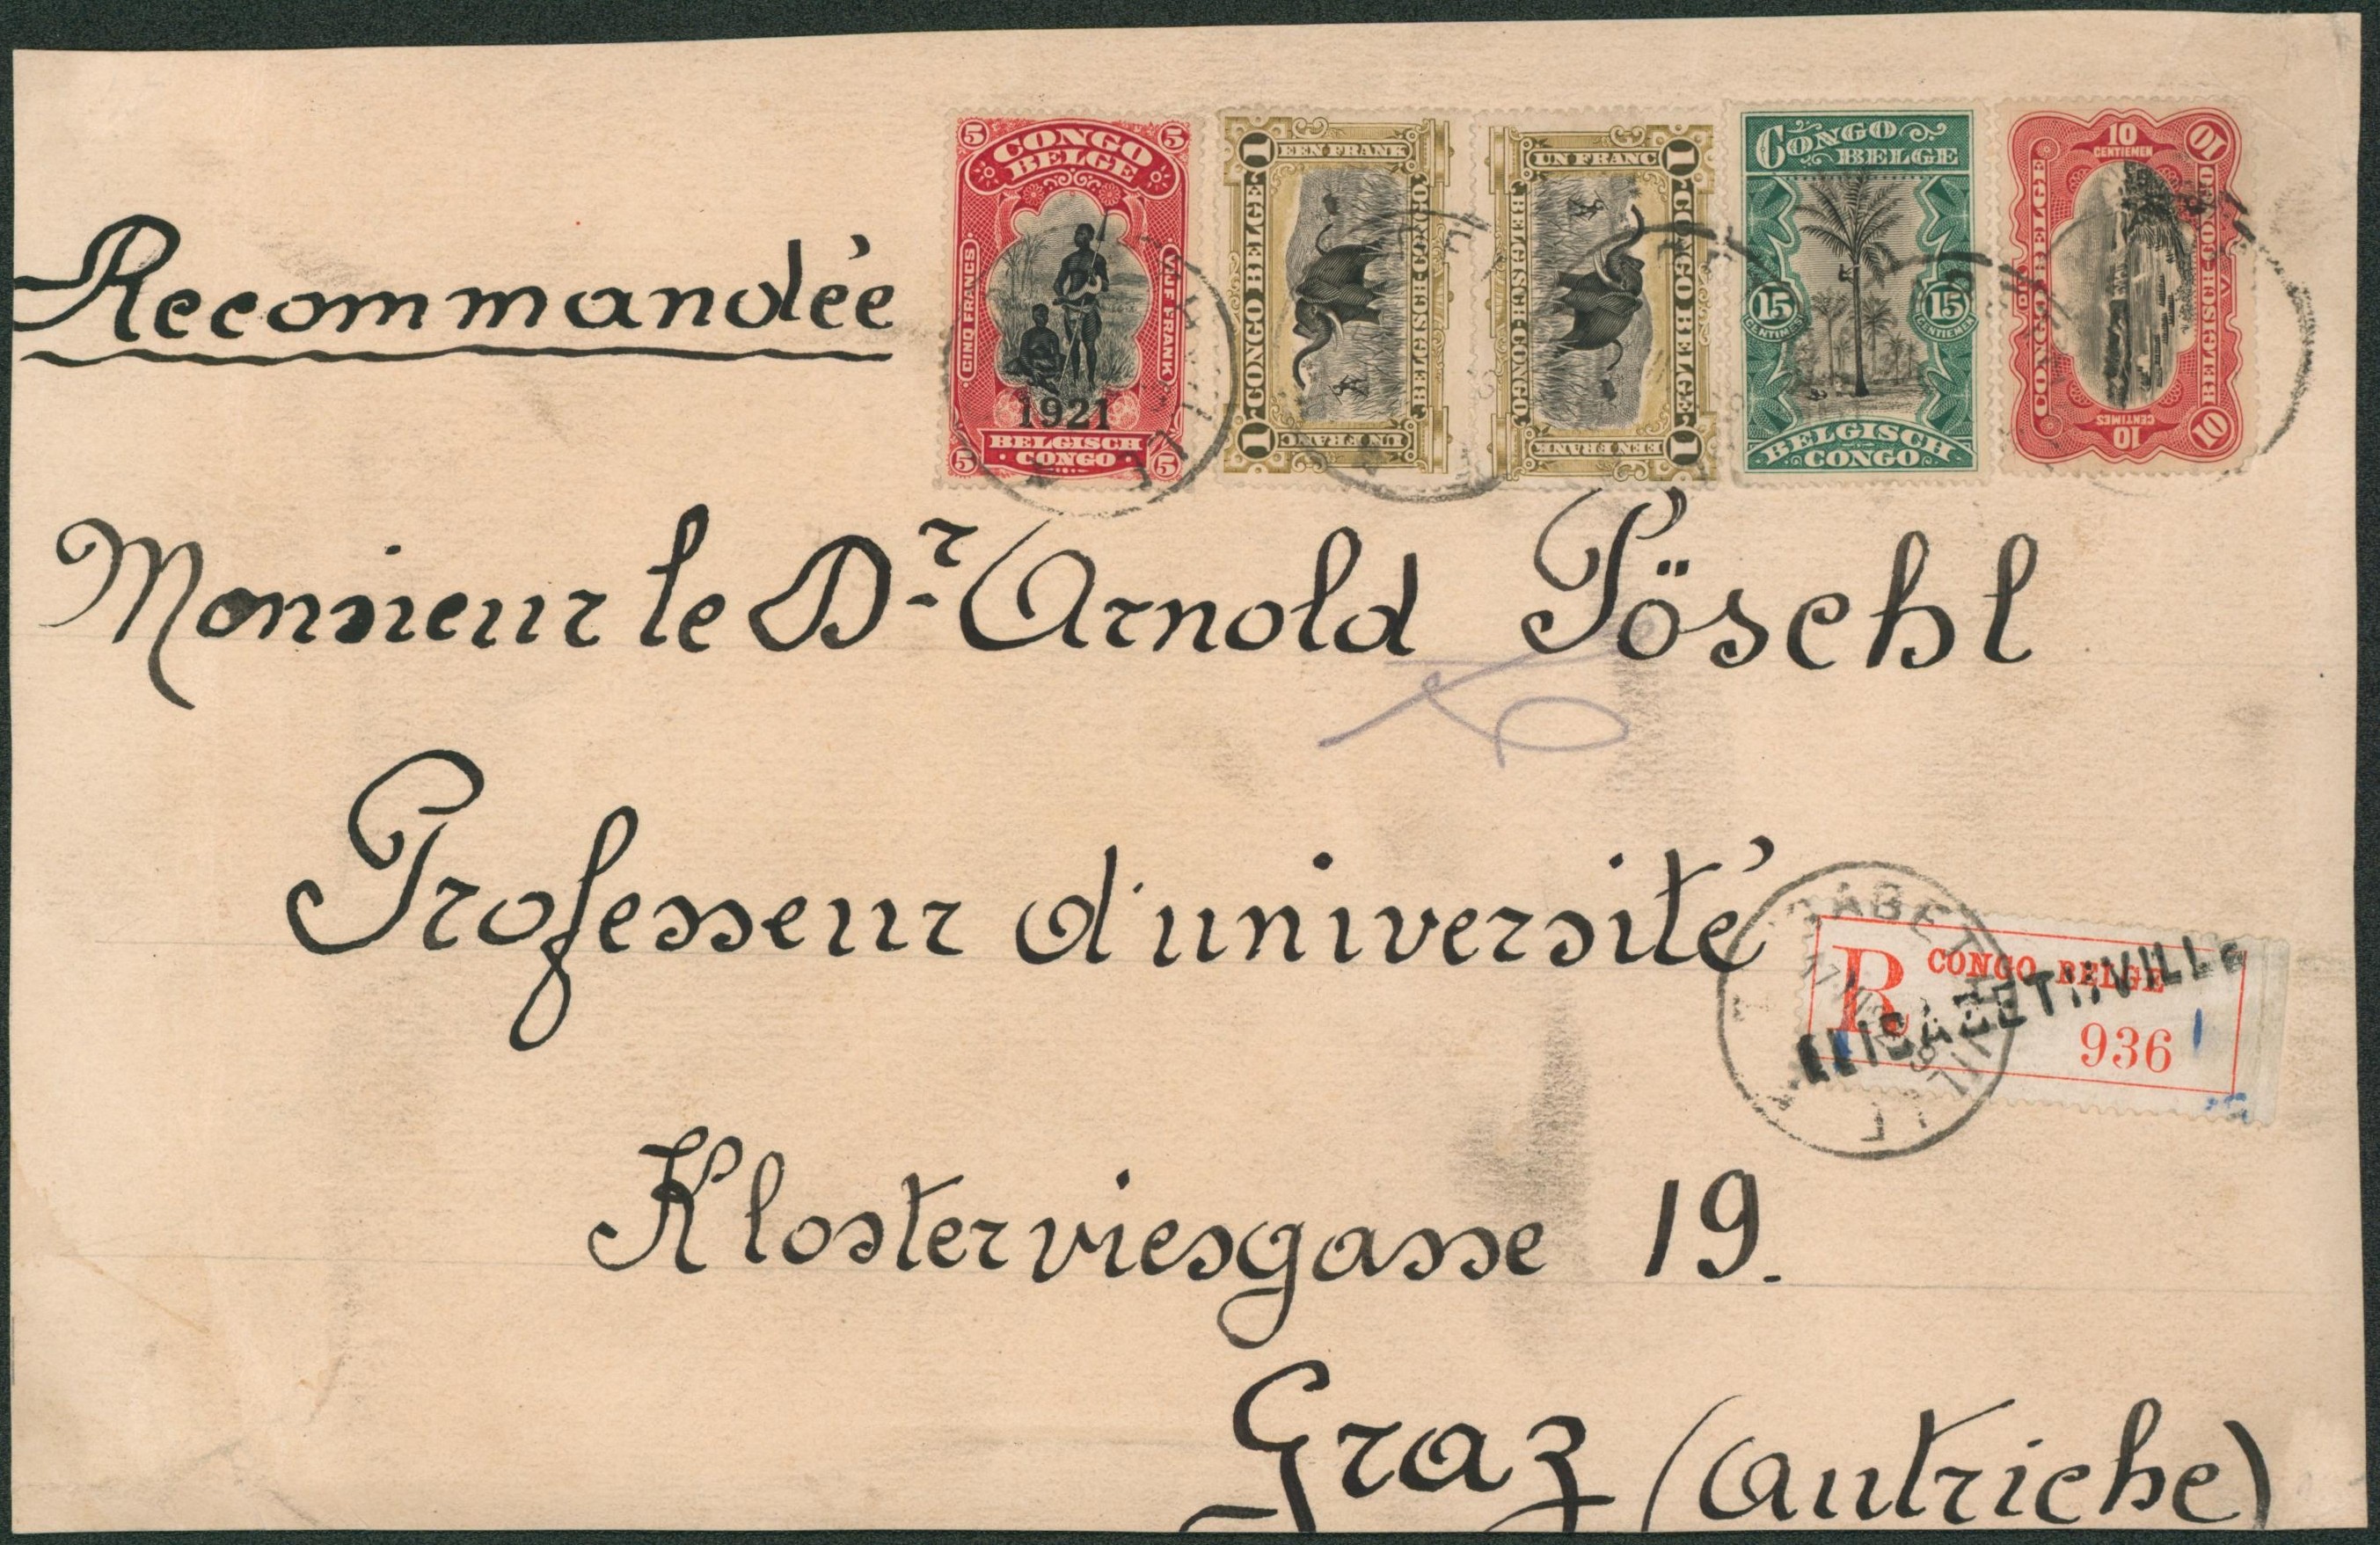 5 CONGO BELGE 5
CINQ FRANCS
VIJF FRANK
1921
5 BELGISCH CONGO 5
1 EEN FRANK
CONGO BELGE
BELGISCH CONGO
1 UN FRANC
UN FRANC 1
BELGISCH CONGO
CONGO BELGE
EEN FRANK 1
CONGO BELGE
15 CENTIMES
15 CENTIEMEN
BELGISCH CONGO
10 CENTIEMEN 10
CONGO BELGE
BELGISCH CONGO
10 CENTIMES 10
Recommandée
Monsieur le Dr Arnold Pöschl
Professeur d'université
R CONGO BELGE
ELISABETHVILLE
936
Klosterviesgasse 19.
Graz (Autriche)